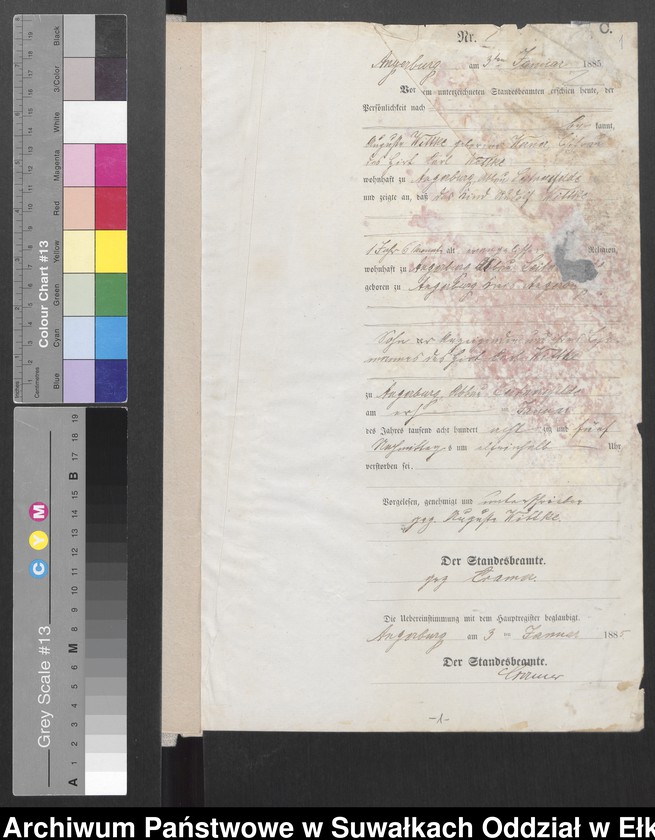 Nr. 1
C.
1
Angerburg am 3ten Januar 1885
Vor dem unterzeichneten Standesbeamten erschien heute, der
Persönlichkeit nach
kannt,
Auguste Wittke geborene
des Hirt Carl Wittke
wohnhaft zu Angerburg Abbau
und zeigte an, daß das Kind Rudolf Wittke
1 Jahr 6 Monate alt, evangelischer Religion,
wohnhaft zu Angerburg Abbau
geboren zu Angerburg
Sohn der Anzeigenden und ihres Ehe-
mannes des Hirt Carl Wittke
zu Angerburg Abbau
am Januar
des Jahres tausend acht hundert achtzig und fünf
Nachmittags um Uhr
verstorben sei.
Vorgelesen, genehmigt und unterschrieben
gez. Auguste Wittke.
Der Standesbeamte.
gez
Die Uebereinstimmung mit dem Hauptregister beglaubigt.
Angerburg am 3ten Januar 1885
Der Standesbeamte.
-1-
Colour Chart #13
Blue Cyan Green Yellow Red Magenta White 3/Color Black
Inches
Centimetres
Grey Scale #13
C Y M
A 1 2 3 4 5 6 M 8 9 10 11 12 13 14 15 B 17 18 19
Archiwum Państwowe w Suwałkach Oddział w Ełk